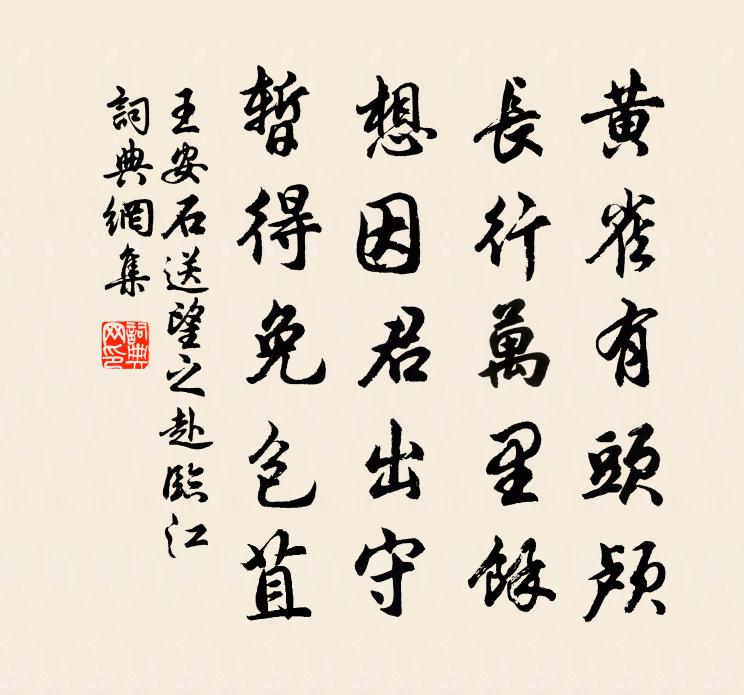 黄雀有頭顱
長行萬里餘
想因君出守
暫得免包苴
王安石送望之赴臨江
詞典網集
詞典
网印